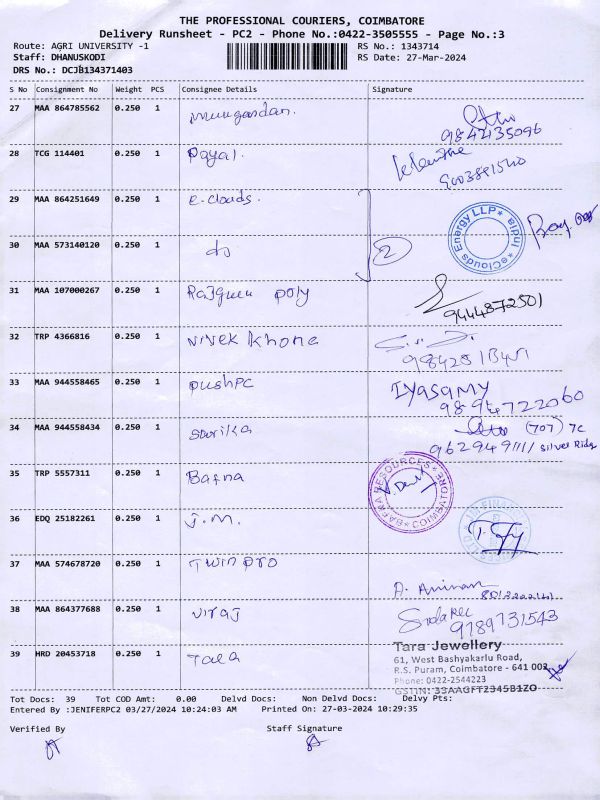 THE PROFESSIONAL COURIERS, COIMBATORE
Delivery Runsheet - PC2 - Phone No.:0422-3505555 - Page No.:3
Route: AGRI UNIVERSITY -1 RS No.: 1343714
Staff: DHANUSKODI RS Date: 27-Mar-2024
DRS No.: DCJB134371403
S No Consignment No Weight PCS Consignee Details Signature
27 MAA 864785562 0.250 1 Murugandan.
9842135096
28 TCG 114401 0.250 1 Payal.
29 MAA 864251649 0.250 1 e-clouds.
eClouds Energy LLP * India *
30 MAA 573140120 0.250 1 do 2
31 MAA 107000267 0.250 1 poly
9444872501
32 TRP 4366816 0.250 1 vivek khona
33 MAA 944558465 0.250 1 pushpc IYASAMY
9894722060
34 MAA 944558434 0.250 1 sarika (707) 7C
9629491111 silver Ridg
35 TRP 5557311 0.250 1 Bafna
BAFNA RESOURCES * COIMBATORE *
36 EDQ 25182261 0.250 1 J.M.
37 MAA 574678720 0.250 1 Twin pro
38 MAA 864377688 0.250 1 viraj
9789731543
39 HRD 20453718 0.250 1 Tara
Tara Jewellery
61, West Bashyakarlu Road,
R.S. Puram, Coimbatore - 641 002
Phone: 0422-2544223
GSTIN: 33AAGFT2345B1ZO
Tot Docs: 39 Tot COD Amt: 0.00 Delvd Docs: Non Delvd Docs: Delvy Pts:
Entered By :JENIFERPC2 03/27/2024 10:24:03 AM Printed On: 27-03-2024 10:29:35
Verified By Staff Signature